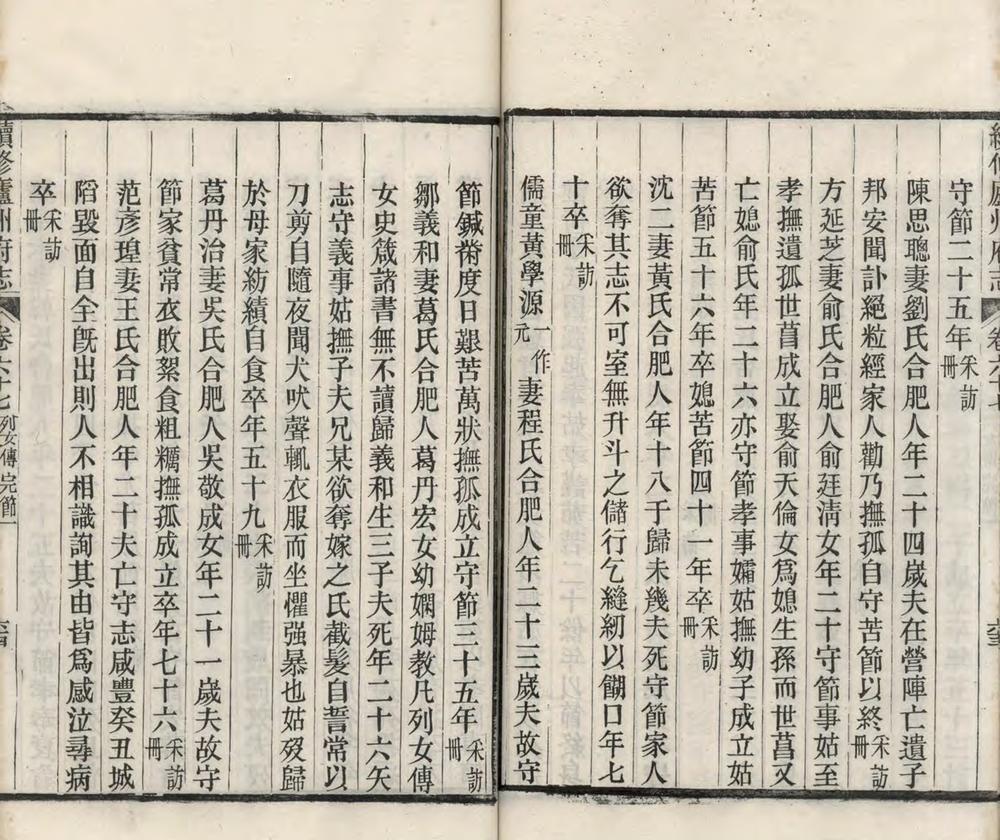 續修廬州府志 卷六十七
守節二十五年采訪冊
陳思聰妻劉氏合肥人年二十四歲夫在營陣亡遺子
邦安聞訃絕粒經家人勸乃撫孤自守苦節以終采訪冊
方延芝妻俞氏合肥人俞廷淸女年二十守節事姑至
孝撫遺孤世菖成立娶俞天倫女爲媳生孫而世菖又
亡媳俞氏年二十六亦守節孝事孀姑撫幼子成立姑
苦節五十六年卒媳苦節四十一年卒采訪冊
沈二妻黃氏合肥人年十八于歸未幾夫死守節家人
欲奪其志不可室無升斗之儲行乞縫紉以餬口年七
十卒采訪冊
儒童黃學源一作元妻程氏合肥人年二十三歲夫故守
節鍼黹度日艱苦萬狀撫孤成立守節三十五年采訪冊
鄒義和妻葛氏合肥人葛丹宏女幼嫻姆教凡列女傳
女史箴諸書無不讀歸義和生三子夫死年二十六矢
志守義事姑撫子夫兄某欲奪嫁之氏截髮自誓常以
刀剪自隨夜聞犬吠聲輒衣服而坐懼强暴也姑歿歸
於母家紡績自食卒年五十九采訪冊
葛丹治妻吳氏合肥人吳敬成女年二十一歲夫故守
節家貧常衣敗絮食粗糲撫孤成立卒年七十六采訪冊
范彥瑝妻王氏合肥人年二十夫亡守志咸豐癸丑城
陷毀面自全旣出則人不相識詢其由皆爲感泣尋病
卒采訪冊
續修廬州府志 卷六十七 列女傳完節一